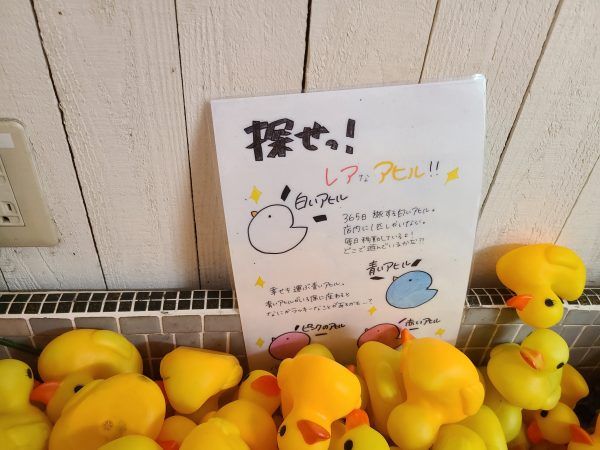 探せっ!
レアなアヒル!!
白いアヒル
365日 旅する白いアヒル。
店内に1匹しかいない。
毎日移動しているよ!
どこで遊んでいるかな??
青いアヒル
幸せを運ぶ青いアヒル。
青いアヒルがいる席に座ると
なにかラッキーなことがあるかもって
ピンクのアヒル
赤いアヒル